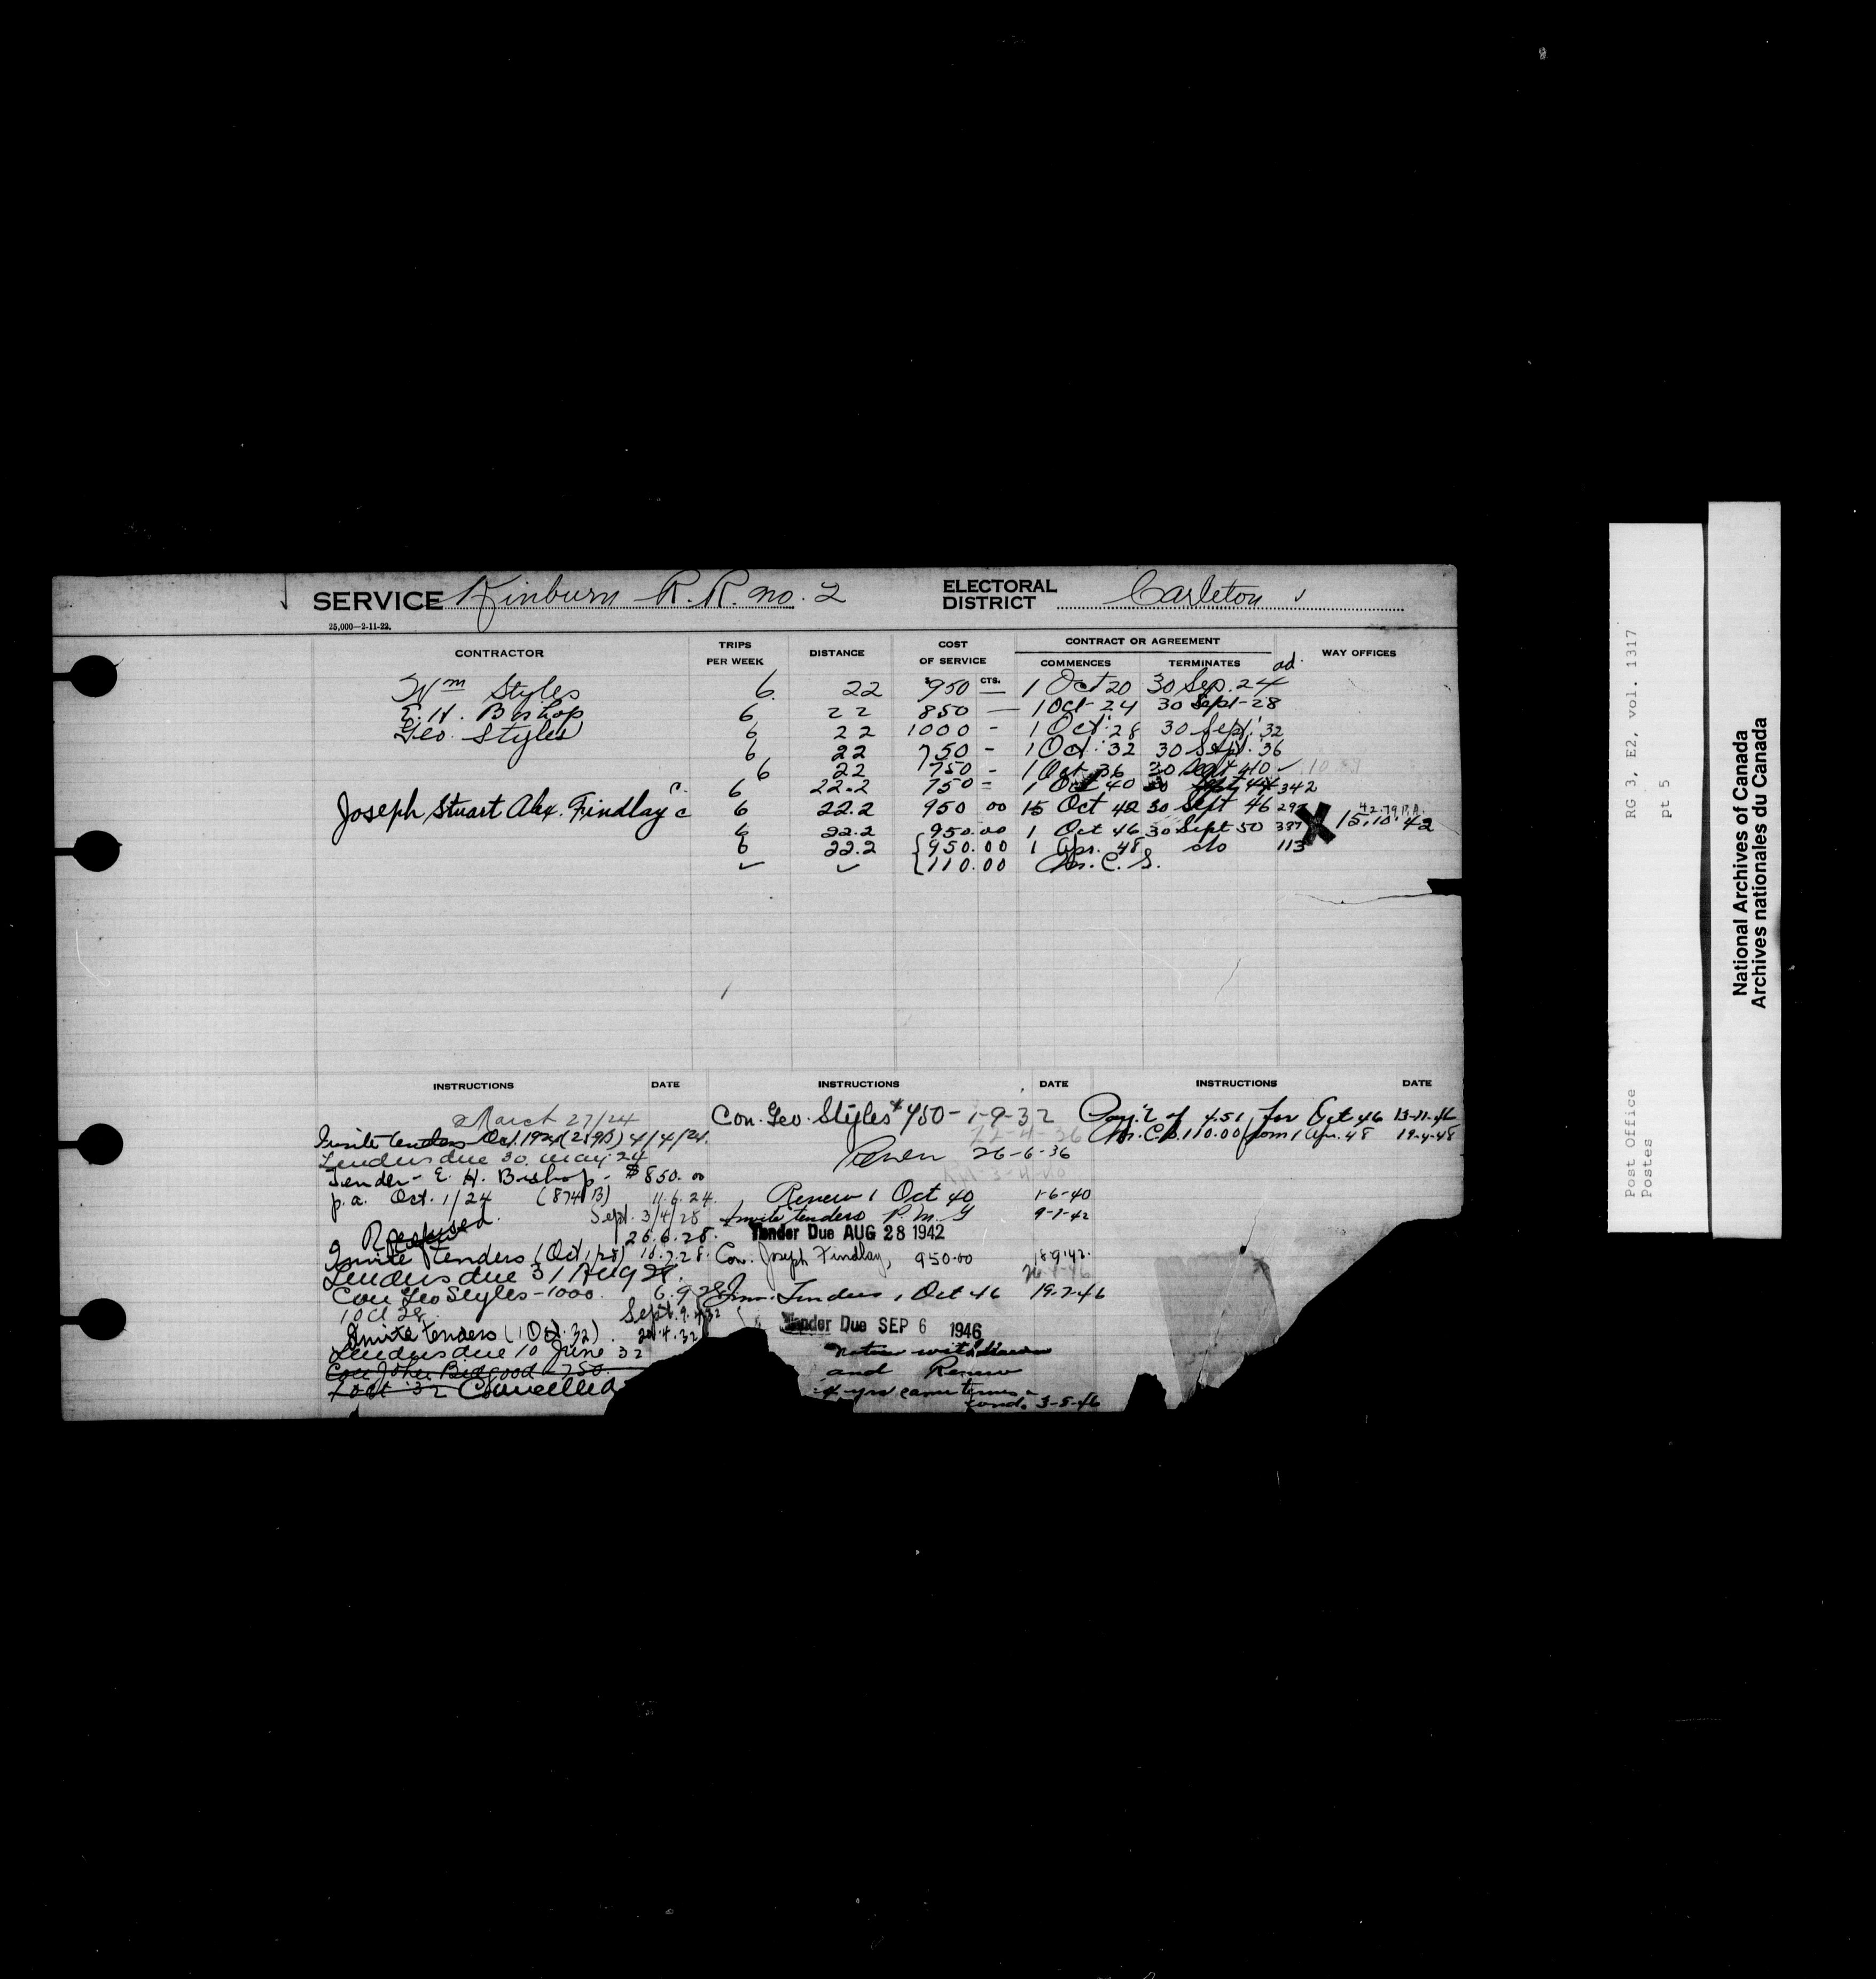 SERVICE Kinburn R.R. no. 2 ELECTORAL DISTRICT Carleton
25,000—2-11-22.
CONTRACTOR TRIPS PER WEEK DISTANCE COST OF SERVICE CONTRACT OR AGREEMENT COMMENCES TERMINATES ad. WAY OFFICES
Wm Styles 6. 22 $950 CTS. — 1 Oct 20 30 Sep. 24
E. H. Bishop 6 22 850 — 1 Oct-24 30 Sept-28
Geo. Styles 6 22 1000 - 1 Oct. 28 30 Sept. 32
6 22 750 - 1 Oct. 32 30 Sept. 36
6 22 750 - 1 Oct 36 30 Sept 40
C. 6 22.2 750 = 1 Oct 40 30 Sept 44 342
Joseph Stuart Alex. Findlay c 6 22.2 950 00 15 Oct 42 30 Sept 46 42.79 P.A.
6 22.2 950.00 1 Oct 46 30 Sept 50 X 15.10.42
6 22.2 950.00 1 Apr. 48 do 113
110.00 M.C.S.
INSTRUCTIONS DATE INSTRUCTIONS DATE INSTRUCTIONS DATE
March 27/24
Invite tenders Oct. 1924 (259B) 4/4/24.
Tenders due 30 May 24
Tender - E. H. Bishop - $850.00
p.a. Oct. 1/24 (874 B) 11.6.24.
Sept. 3/4/28
26.6.28.
Invite Tenders (Oct 1/28) 10.7.28.
Tenders due 31 Aug 28.
Con Geo Styles - 1000. 6.9.28
1 Oct 28.
Invite tenders (1 Oct. 32). 20.4.32
Tenders due 10 June 32
Con John Bidgood - 750.
1 Oct 32 Cancelled
Con. Geo. Styles $750 - 1-9-32
22-4-36
Renew 26-6-36
Renew 1 Oct 40 1-6-40
Invite tenders P.M.G 9-7-42
Tender Due AUG 28 1942
Con. Joseph Findlay, 950.00 18.9.42.
Inv. Tenders 1 Oct 46 19.7.46
Tender Due SEP 6 1946
Notice withdrawn
and Renew
4 yrs same terms
cond. 3-8-46
Pay't of 4.51 for Oct 46 13-11-46
M.C.S. 110.00 from 1 Apr. 48 19-4-48
Post Office RG 3, E2, vol. 1317
Postes pt 5
National Archives of Canada
Archives nationales du Canada